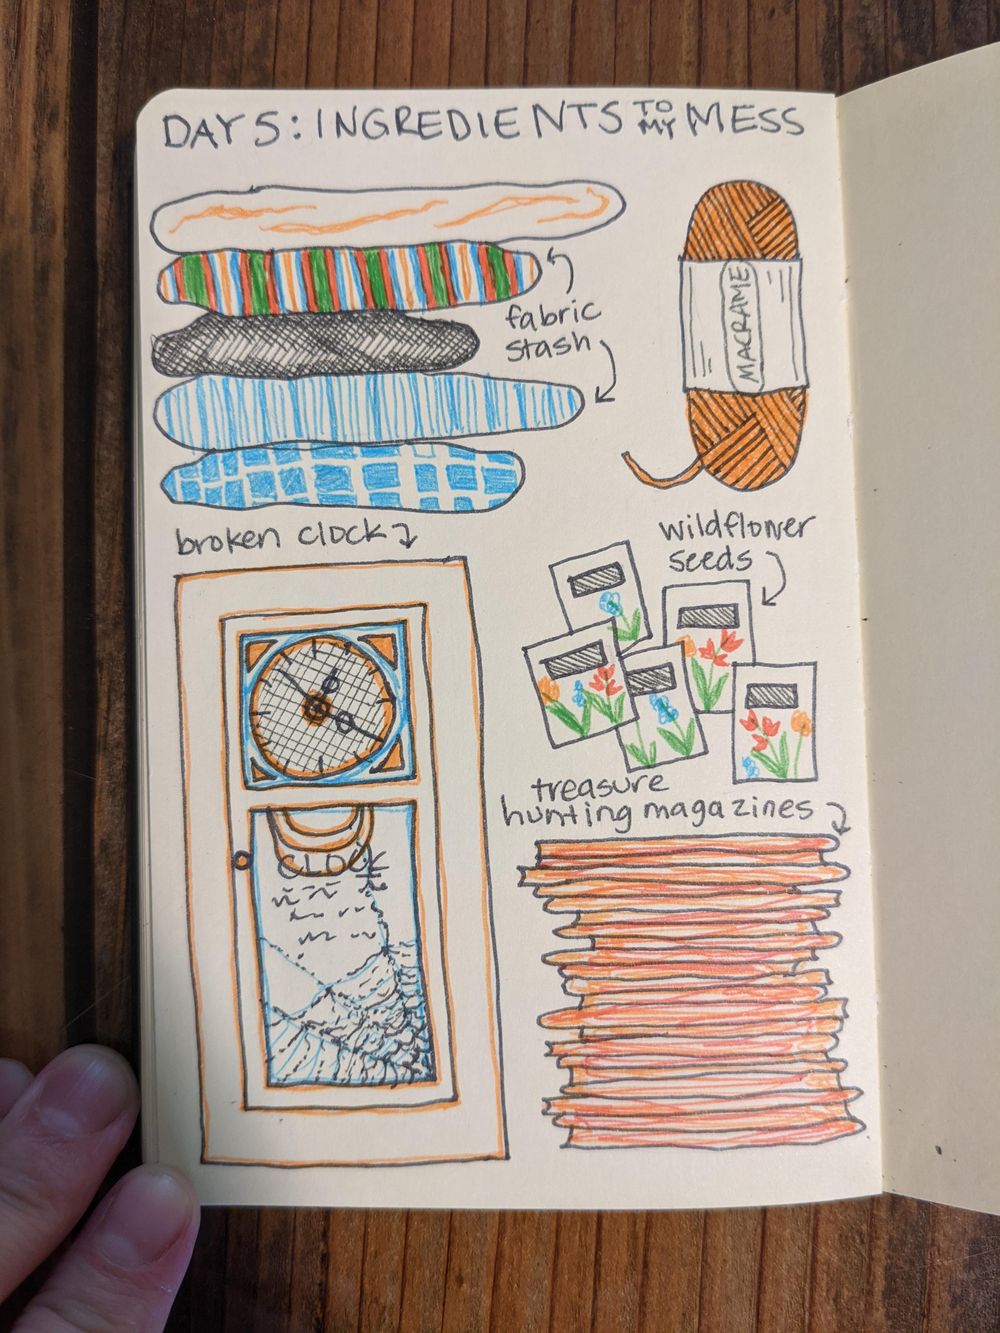 DAY 5: INGREDIENTS TO MY MESS
fabric
stash
MACRAME
broken clock
wildflower
seeds
treasure
hunting magazines
CLOCK